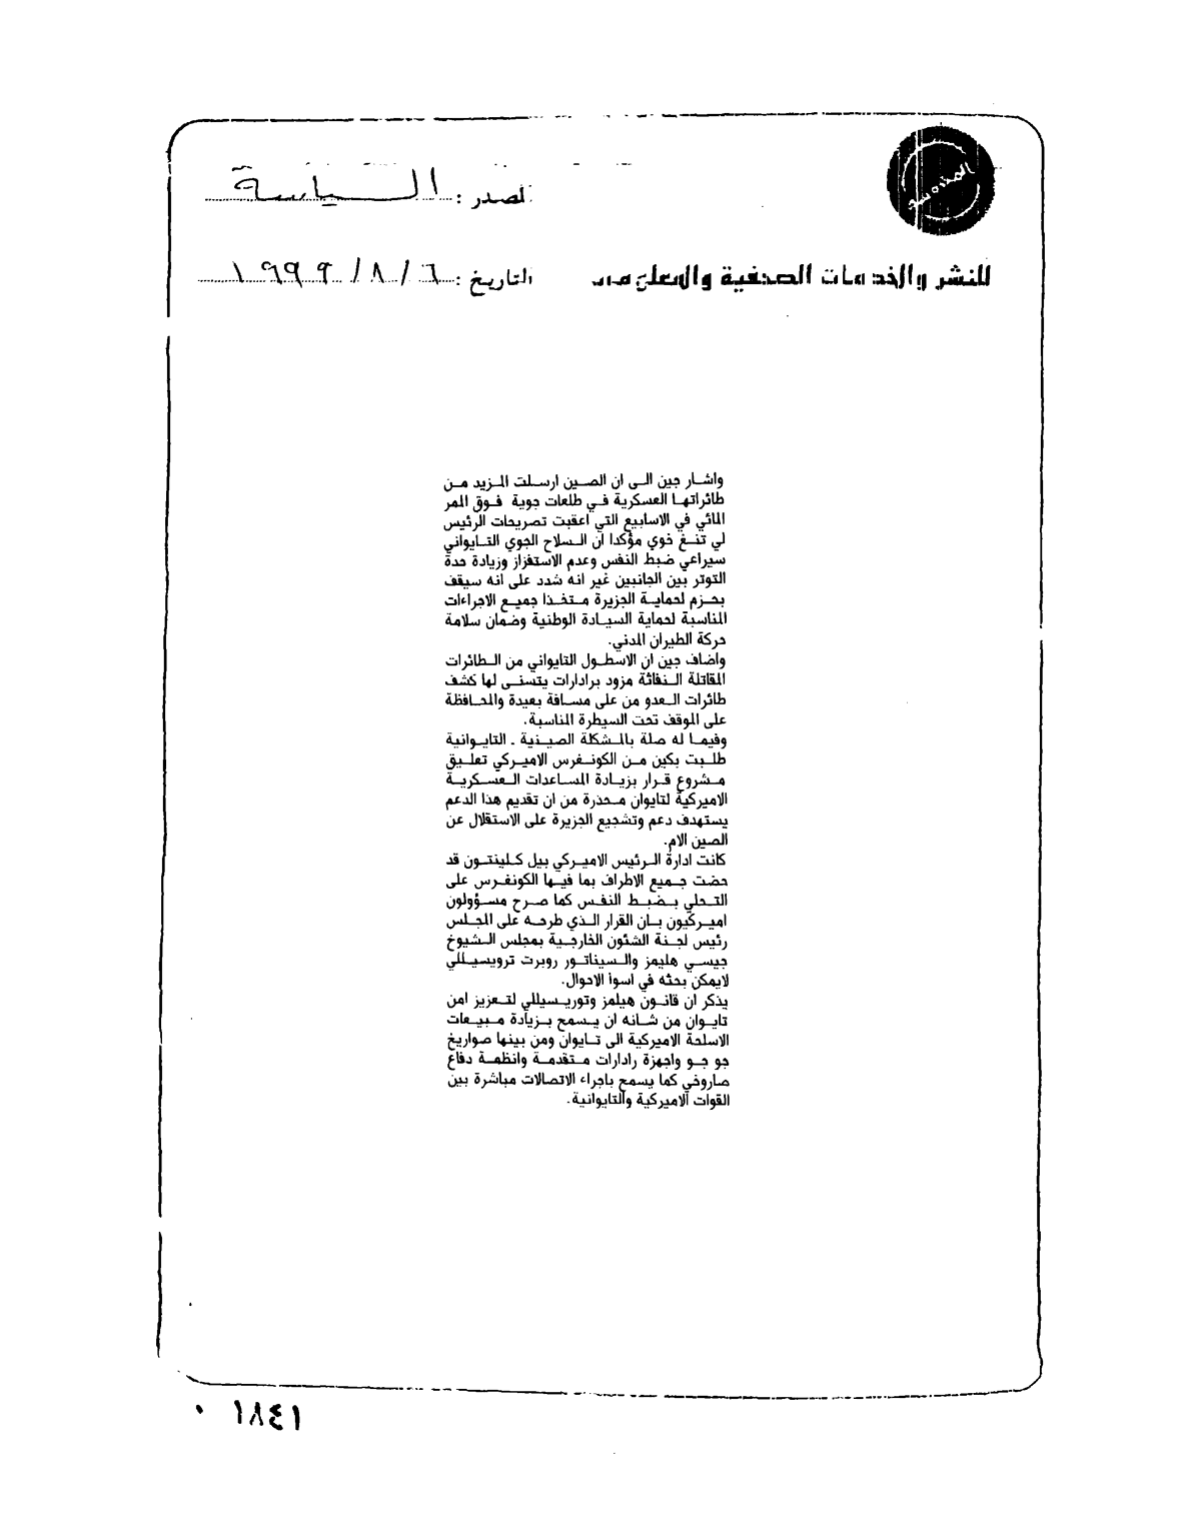 المصدر : السياسة
للنشر والخدمات الصحفية والمعلومات
التاريخ : ٦ / ٨ / ١٩٩٩
واشار جين الى ان الصين ارسلت المزيد من
طائراتها العسكرية في طلعات جوية فوق الممر
المائي في الاسابيع التي اعقبت تصريحات الرئيس
لي تنغ خوي مؤكدا ان السلاح الجوي التايواني
سيراعي ضبط النفس وعدم الاستفزاز وزيادة حدة
التوتر بين الجانبين غير انه شدد على انه سيقف
بحزم لحماية الجزيرة متخذا جميع الاجراءات
المناسبة لحماية السيادة الوطنية وضمان سلامة
حركة الطيران المدني.
واضاف جين ان الاسطول التايواني من الطائرات
المقاتلة النفاثة مزود برادارات يتسنى لها كشف
طائرات العدو من على مسافة بعيدة والمحافظة
على الموقف تحت السيطرة المناسبة.
وفيما له صلة بالمشكلة الصينية ـ التايوانية
طلبت بكين من الكونغرس الاميركي تعليق
مشروع قرار بزيادة المساعدات العسكرية
الاميركية لتايوان محذرة من ان تقديم هذا الدعم
يستهدف دعم وتشجيع الجزيرة على الاستقلال عن
الصين الام.
كانت ادارة الرئيس الاميركي بيل كلينتون قد
حضت جميع الاطراف بما فيها الكونغرس على
التحلي بضبط النفس كما صرح مسؤولون
اميركيون بان القرار الذي طرحه على المجلس
رئيس لجنة الشئون الخارجية بمجلس الشيوخ
جيسي هليمز والسيناتور روبرت ترويسيللي
لايمكن بحثه في اسوأ الاحوال.
يذكر ان قانون هيلمز وتوريسيللي لتعزيز امن
تايوان من شانه ان يسمح بزيادة مبيعات
الاسلحة الاميركية الى تايوان ومن بينها صواريخ
جو جو واجهزة رادارات متقدمة وانظمة دفاع
صاروخي كما يسمح باجراء الاتصالات مباشرة بين
القوات الاميركية والتايوانية.
٠ ١٨٤١